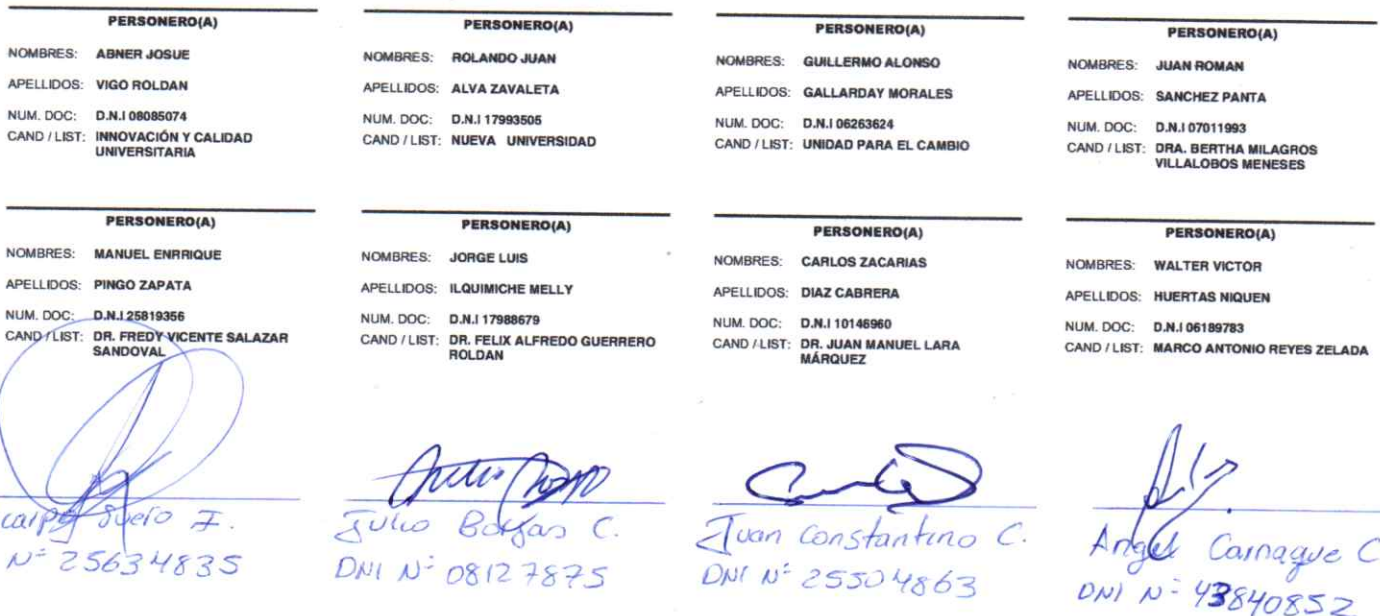 PERSONERO(A)
NOMBRES: ABNER JOSUE
APELLIDOS: VIGO ROLDAN
NUM. DOC: D.N.I 08085074
CAND / LIST: INNOVACIÓN Y CALIDAD
UNIVERSITARIA
PERSONERO(A)
NOMBRES: ROLANDO JUAN
APELLIDOS: ALVA ZAVALETA
NUM. DOC: D.N.I 17993505
CAND / LIST: NUEVA UNIVERSIDAD
PERSONERO(A)
NOMBRES: GUILLERMO ALONSO
APELLIDOS: GALLARDAY MORALES
NUM. DOC: D.N.I 06263624
CAND / LIST: UNIDAD PARA EL CAMBIO
PERSONERO(A)
NOMBRES: JUAN ROMAN
APELLIDOS: SANCHEZ PANTA
NUM. DOC: D.N.I 07011993
CAND / LIST: DRA. BERTHA MILAGROS
VILLALOBOS MENESES
PERSONERO(A)
NOMBRES: MANUEL ENRRIQUE
APELLIDOS: PINGO ZAPATA
NUM. DOC: D.N.I 25819356
CAND / LIST: DR. FREDY VICENTE SALAZAR
SANDOVAL
PERSONERO(A)
NOMBRES: JORGE LUIS
APELLIDOS: ILQUIMICHE MELLY
NUM. DOC: D.N.I 17988679
CAND / LIST: DR. FELIX ALFREDO GUERRERO
ROLDAN
PERSONERO(A)
NOMBRES: CARLOS ZACARIAS
APELLIDOS: DIAZ CABRERA
NUM. DOC: D.N.I 10146960
CAND / LIST: DR. JUAN MANUEL LARA
MÁRQUEZ
PERSONERO(A)
NOMBRES: WALTER VICTOR
APELLIDOS: HUERTAS NIQUEN
NUM. DOC: D.N.I 06189783
CAND / LIST: MARCO ANTONIO REYES ZELADA
Suero I.
Nº 25634835
Julio C.
DNI Nº 08127875
Juan Constantino C.
DNI Nº 25504863
Angel Carnaque C
DNI Nº 43840852